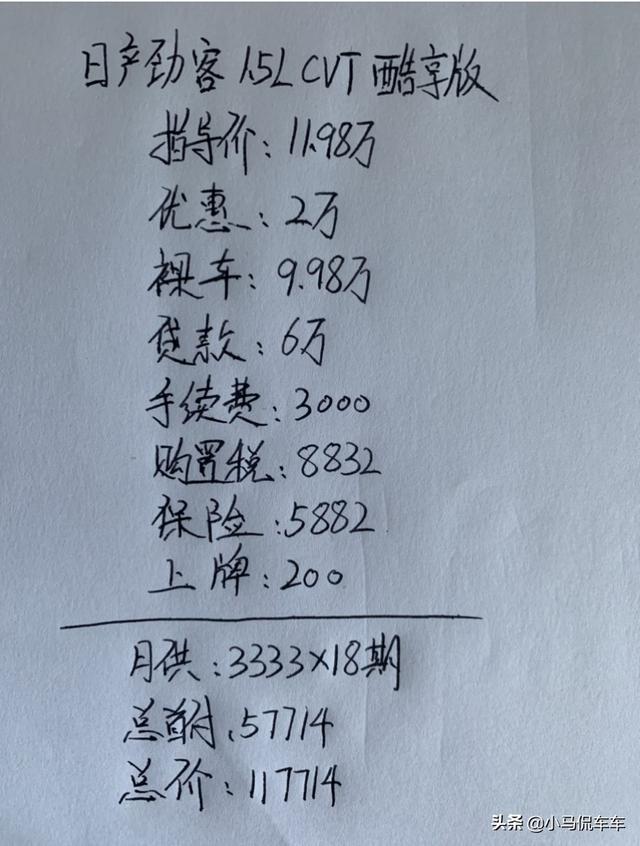 日产劲客 1.5L CVT 酷享版
指导价：11.98万
优惠：2万
裸车：9.98万
贷款：6万
手续费：3000
购置税：8832
保险：5882
上牌：200
月供：3333×18期
总首付：57714
总价：117714
头条 @小马侃车车